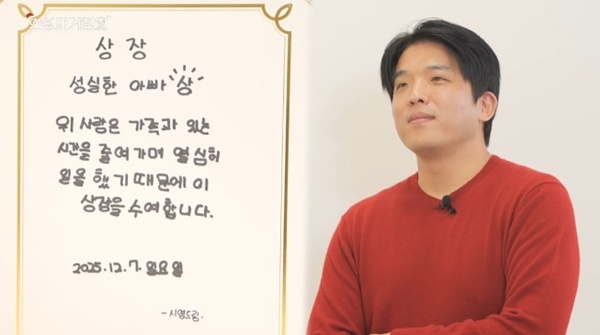 상장
성실한 아빠 상
위 사람은 가족과 있는
시간을 줄여가며 열심히
일을 했기 때문에 이
상장을 수여합니다.
2025.12.7. 일요일
-시영드림.